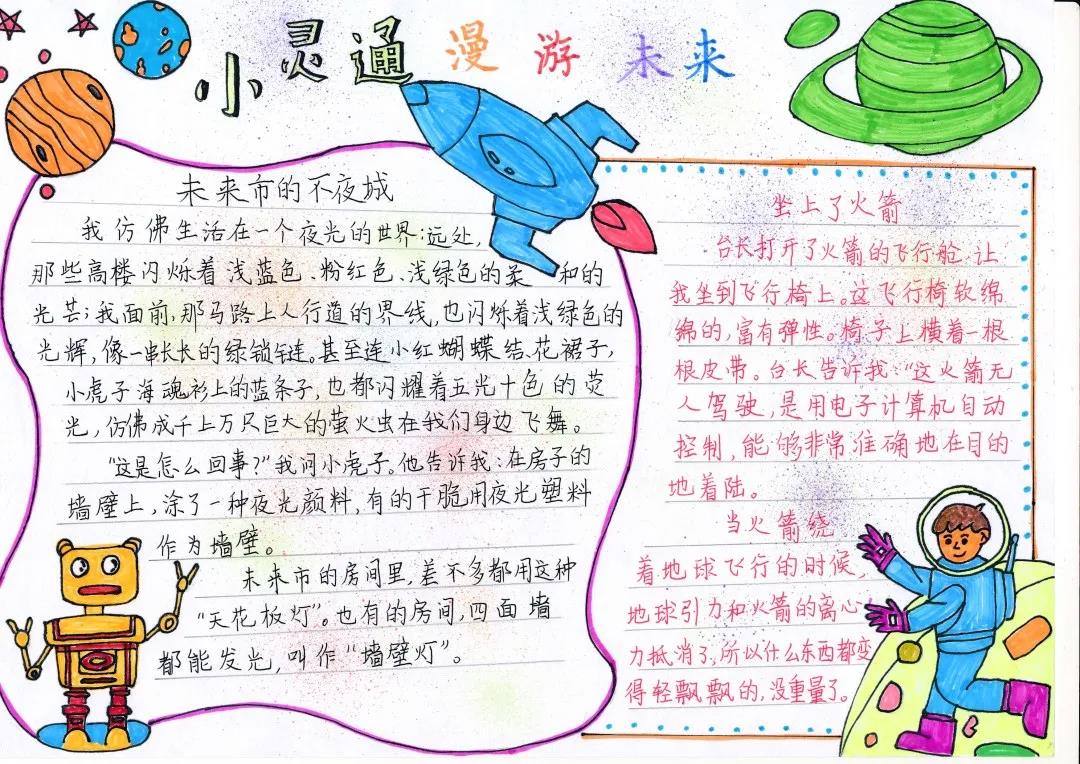 小灵通漫游未来
未来市的不夜城
我仿佛生活在一个夜光的世界:远处,
那些高楼闪烁着浅蓝色、粉红色、浅绿色的柔和的
光芒;我面前,那马路上人行道的界线,也闪烁着浅绿色的
光辉,像一串长长的绿锁链。甚至连小红蝴蝶结、花裙子,
小虎子海魂衫上的蓝条子,也都闪耀着五光十色的荧
光,仿佛成千上万只巨大的萤火虫在我们身边飞舞。
“这是怎么回事?”我问小虎子。他告诉我:在房子的
墙壁上,涂了一种夜光颜料,有的干脆用夜光塑料
作为墙壁。
未来市的房间里,差不多都用这种
“天花板灯”。也有的房间,四面墙
都能发光,叫作“墙壁灯”。
坐上了火箭
台长打开了火箭的飞行舱,让
我坐到飞行椅上。这飞行椅软绵
绵的,富有弹性。椅子上横着一根
根皮带。台长告诉我:“这火箭无
人驾驶,是用电子计算机自动
控制,能够非常准确地在目的
地着陆。
当火箭绕
着地球飞行的时候,
地球引力和火箭的离心
力抵消了,所以什么东西都变
得轻飘飘的,没重量了。